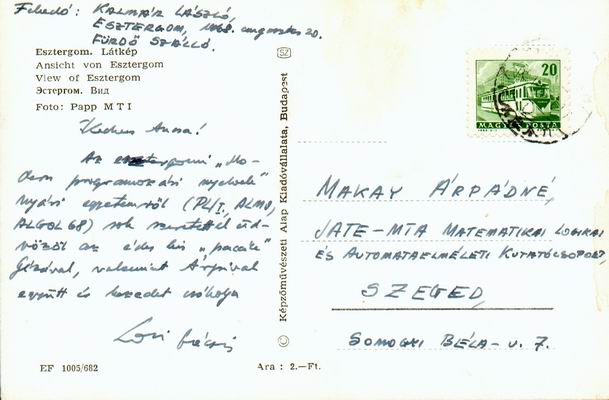 Feladó: KALMÁR LÁSZLÓ,
ESZTERGOM, 1968. augusztus 20.
FÜRDŐ SZÁLLÓ.
Esztergom. Látkép
Ansicht von Esztergom
View of Esztergom
Эстергом. Вид
Foto: Papp MTI
Kedves Anna!
Az esztergomi „Mo-
dern programozási nyelvek"
nyári egyetemről (PL/I, ALMO,
ALGOL 68) sok szeretettel üd-
vözöl az édes kis
Gézával, valamint Árpával
együtt és kezedet csókolja
Laci bácsi
EF 1005/682
Ára : 2.—Ft.
SZ
Képzőművészeti Alap Kiadóvállalata, Budapest
20
MAGYAR POSTA
MAKAY ÁRPÁDNÉ,
JATE-MTA MATEMATIKAI LOGIKAI
ÉS AUTOMATAELMÉLETI KUTATÓCSOPORT,
SZEGED,
SOMOGYI BÉLA-U. 7.